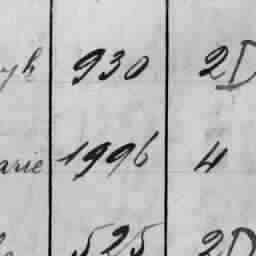 930 2D
arie 1996 4
525 2D